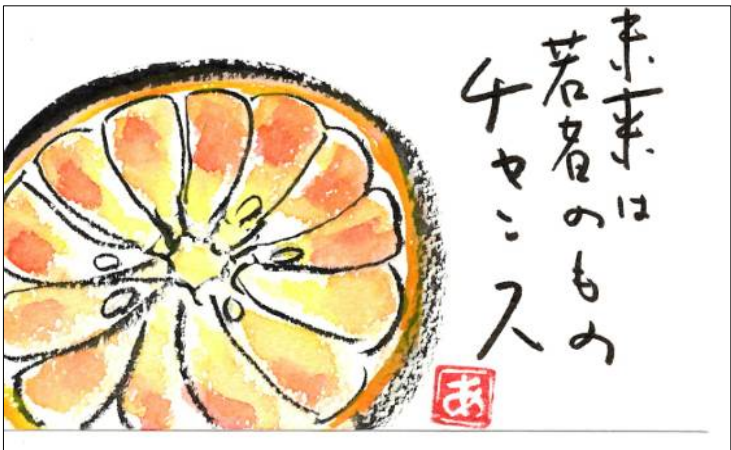 未来は
若者のもの
チャンス
あ